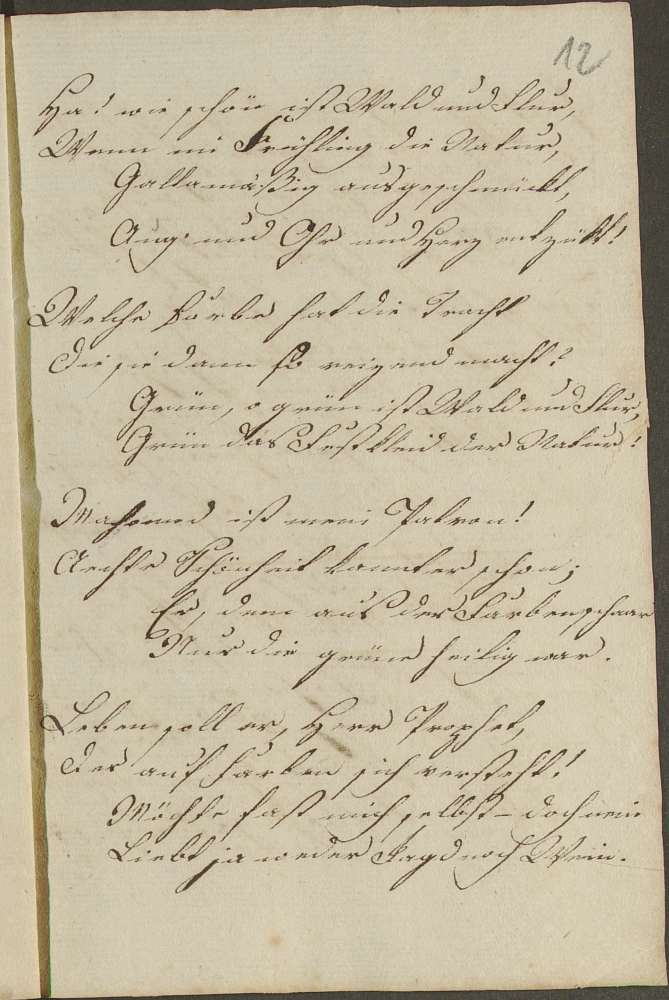 12
Ha! wie schön ist Wald und Flur,
Wenn im Frühling die Natur,
Gallamäßig ausgeschmückt,
Aug' und Ohr und Herz entzükt!
Welche Farbe hat die Tracht
Die sie dann so reizend macht?
Grün, o grün ist Wald und Flur,
Grün das Festkleid der Natur!
Mahomed ist mein Patron!
Aechte Schönheit kannt er schon;
Er, dem aus der Farbenschaar
Nur die grüne heilig war.
Leben soll er, Herr Prophet,
Der auf Farben sich versteht!
Möchte fast mich selbst – doch nein
Liebt ja weder Jagd noch Wein.